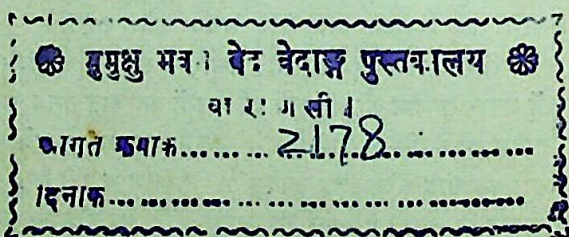 मुमुक्षु भवन वेद वेदाङ्ग पुस्तकालय
वाराणसी ।
आगत क्रमाक...... 2178 ......
दिनाक......